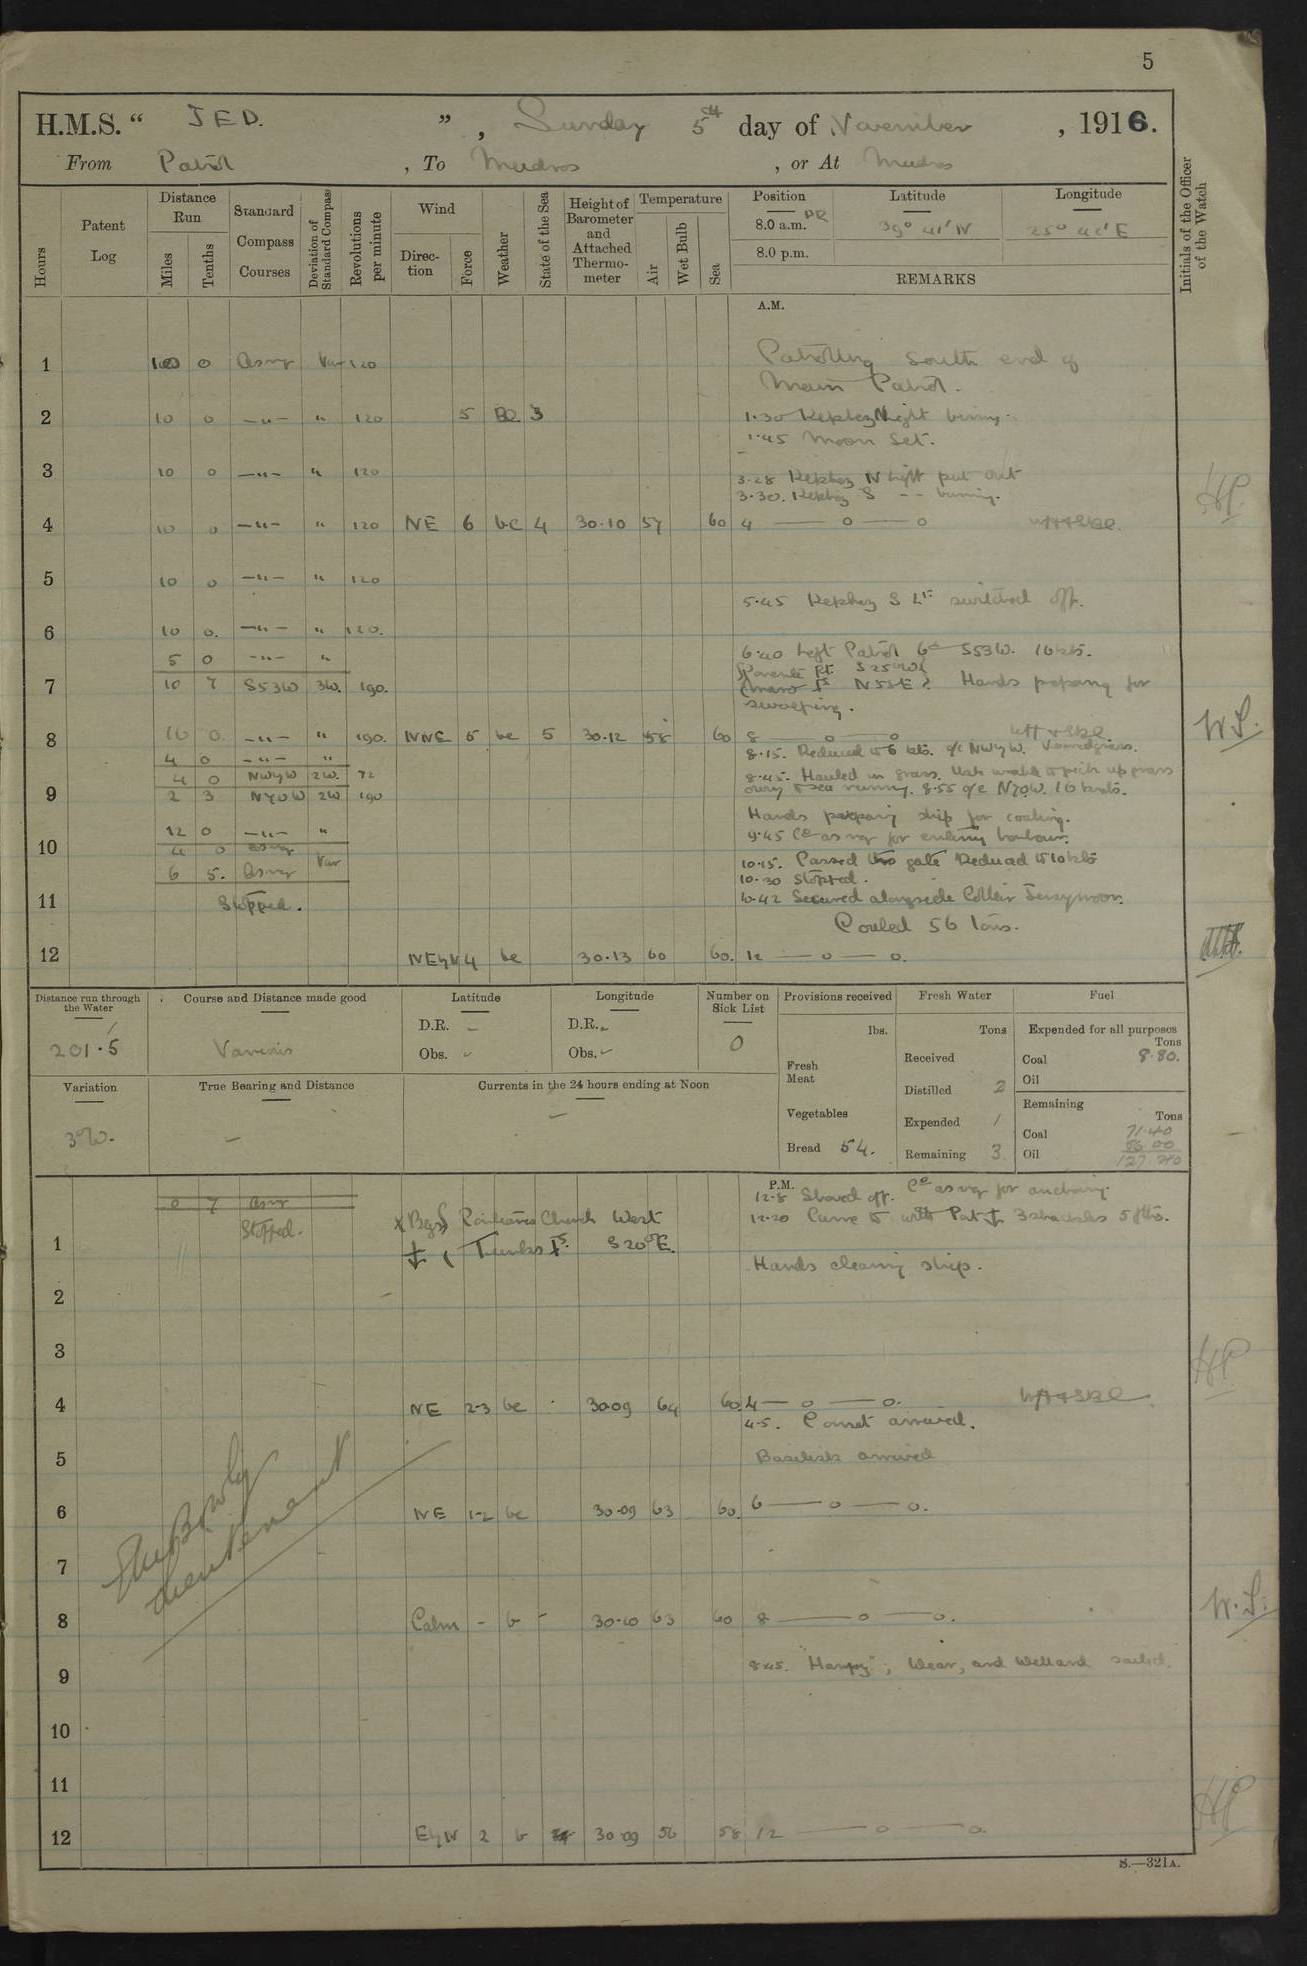 5
H.M.S. " JED. ", Sunday 5th day of November, 1916.
From Patrol, To Mudros, or At Mudros
Hours
Patent Log
Distance Run
Miles
Tenths
Standard Compass Courses
Deviation of Standard Compass
Revolutions per minute
Wind
Direction
Force
Weather
State of the Sea
Height of Barometer and Attached Thermometer
Temperature
Air
Wet Bulb
Sea
Position
Latitude
Longitude
8.0 a.m. DR 39° 41' N 25° 42' E
8.0 p.m.
REMARKS
Initials of the Officer of the Watch
A.M.
1 10 0 Asreq Var 120 Patrolling South end of
Main Patrol.
2 10 0 —"— " 120 5 BC 3 1.30 Kephez N light burning.
1.45 Moon Set.
3 10 0 —"— " 120 3.28 Kephez N light put out
3.30. Kephez S -- burning.
4 10 0 —"— " 120 NE 6 bc 4 30.10 57 60 4 — o — o
5 10 0 —"— " 120
5.45 Kephez S Lt switched off.
6 10 0. —"— " 120.
5 0 —"— " 6.40 Left Patrol Co S53W. 16 kts.
7 10 7 S53W 3W. 190. Hands preparing for
sweeping.
8 16 0 —"— " 190. NNE 5 bc 5 30.12 58 60 8 — o — o
4 0 —"— " 8.15. Reduced to 6 kts. a/c NWyW.
4 0 NWyW 2W. 72 8.45. Hauled in grass. Unable to pick up grass
9 2 3 N70W 2W 190 owing to sea running. 8.55 a/c N70W. 16 knots.
Hands preparing ship for coaling.
12 0 —"— " 9.45 Co as req for entering harbour.
10 4 0 asreq Var
6 5. Asreq 10.15. Passed thro gate Reduced to 10 kts
10.30 Stopped.
11 Stopped. 10.42 Secured alongside Collier
Coaled 56 tons.
12 NEyN 4 bc 30.13 60 60. 12 — o — o.
Distance run through the Water
201.5
Course and Distance made good
Various
Latitude
D.R. -
Obs.
Longitude
D.R. -
Obs.
Number on Sick List
0
Provisions received
lbs.
Fresh Meat
Vegetables
Bread 54.
Fresh Water
Tons
Received
Distilled 2
Expended 1
Remaining 3
Fuel
Expended for all purposes
Tons
Coal 8.80.
Oil
Remaining
Tons
Coal 71.40
56.00
Oil 127.40
Variation
3°W.
True Bearing and Distance
—
Currents in the 24 hours ending at Noon
—
P.M.
0 7 Asreq 12.8 Shoved off. Co as req for anchoring.
Stopped. Church West 12.20 Came to with Port ⚓ 3 shackles 5 fths.
1 S20°E.
Hands cleaning ship.
2
3
4 NE 2-3 bc 30.09 64 60. 4 — o — o.
4.5. Comet arrived.
5 Basilisk arrived
6 NE 1-2 bc 30.09 63 60. 6 — o — o.
7
8 Calm - b - 30.10 63 60 8 — o — o.
9 8.45. "Harpy", Wear, and Welland sailed.
10
11
12 EyN 2 b 30.09 56 58 12 — o — o.
Lieutenant
HP
W.S.
HP
W.S.
HP
S.—321A.